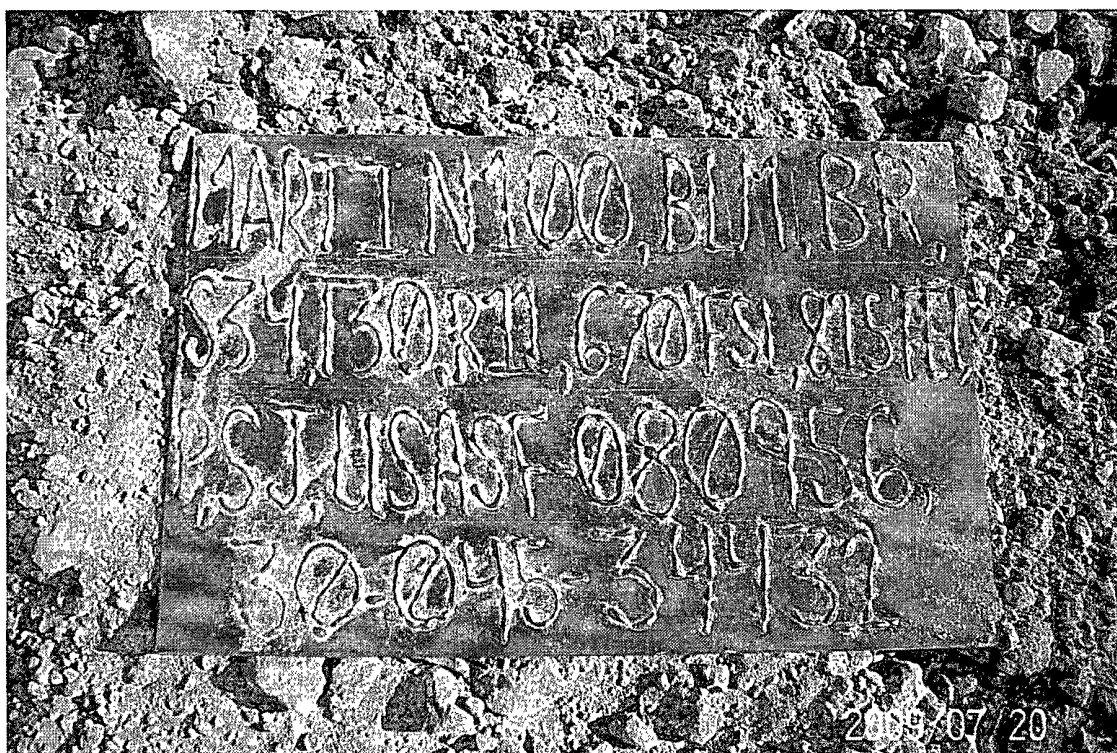 MARTIN 100, BLM, BR,
S34, T30, R11, 670'FSL, 815'FEL,
P, SJ, USASF-080956,
30-045-34432
2009/07/20